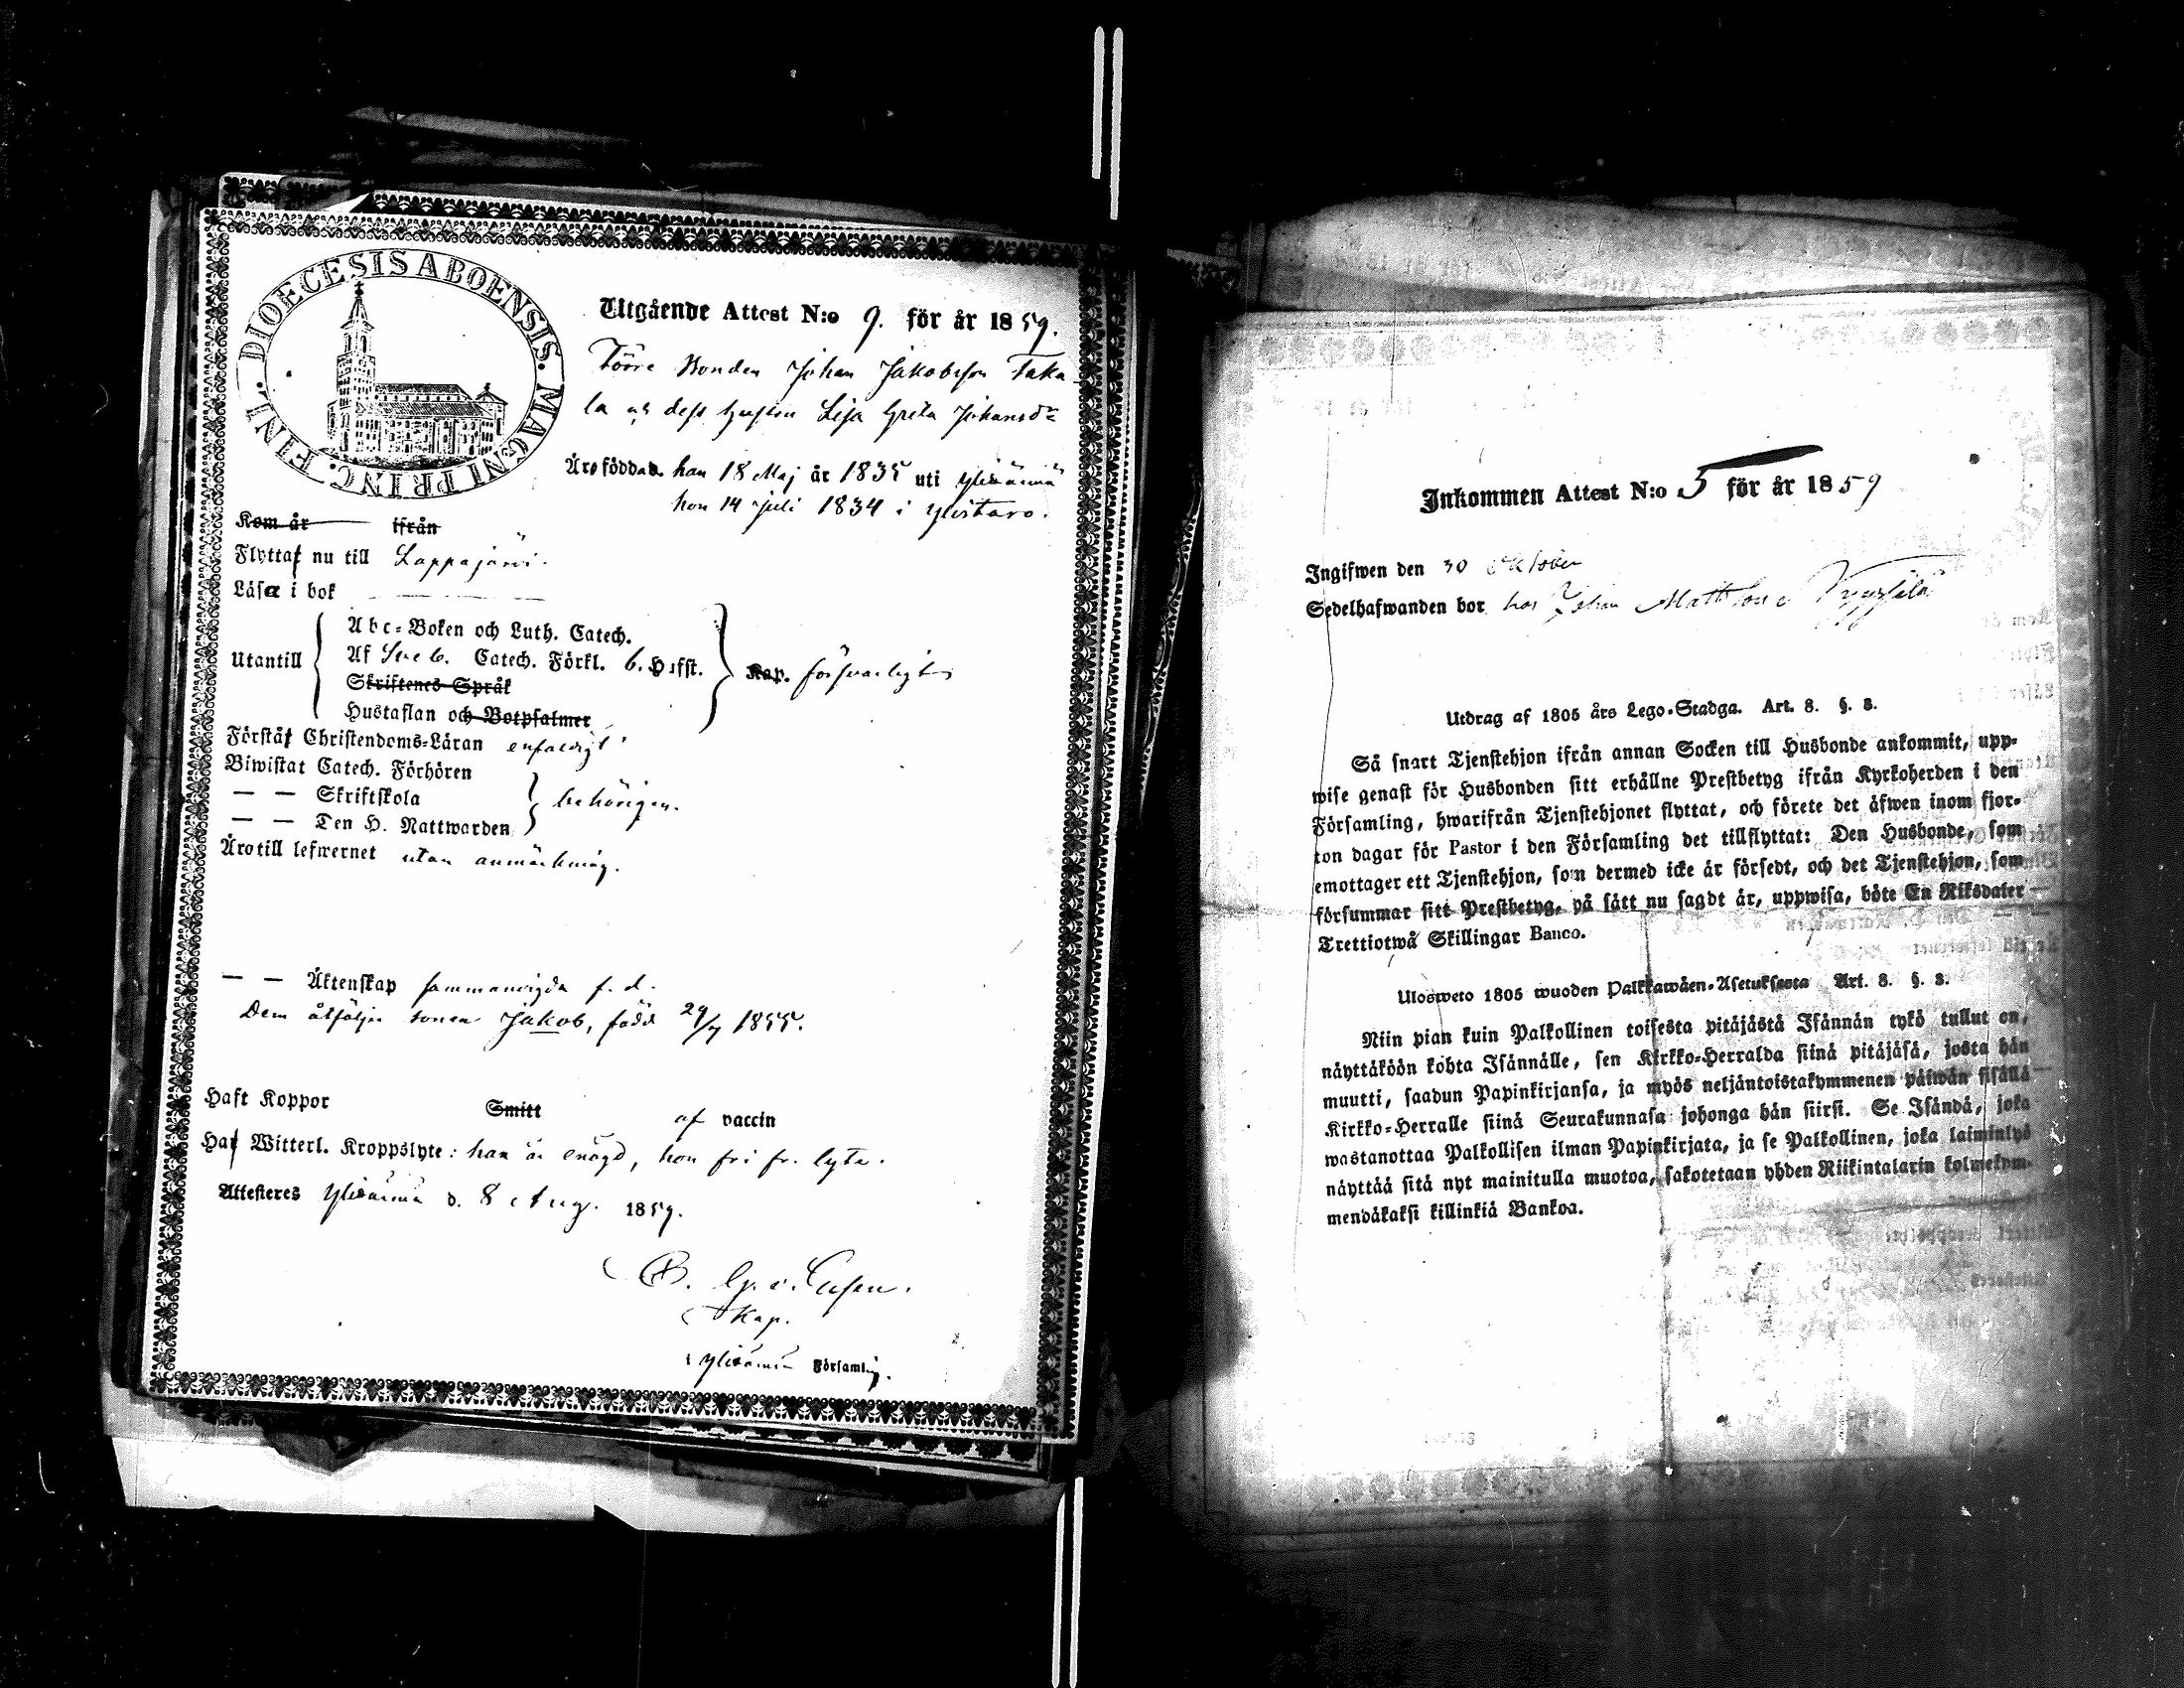 DIOECESIS ABOENSIS. MAGNI PRINC. FINL.
Utgående Attest N:o 9. för år 1859.
Förre Bonden Johan Jakobsson Taka-
la och dess hustru Lisa Greta Johansdr
Äro födda han 18 Maj år 1835 uti Ylihärmä
hon 14 Juli 1834 i Ylistaro.
Kom år ifrån
Flytta nu till Lappajärvi.
Läsa i bok
Utantill
Abc-Boken och Luth. Catech.
Af Sveb. Catech. Förkl. 6. Hufst.
Skriftenes Språk
Hustaflan och Botpsalmer
Kap. försvarligt
Förstå Christendoms-Läran enfaldigt
Biwistat Catech. Förhören
— — Skriftskola
— — Den H. Nattwarden
behörigen.
Äro till lefwernet utan anmärkning.
— — Äktenskap sammanvigda f. d.
Dem åtföljer sonen Jakob, född 29/7 1855.
Haft Koppor Smitt af vaccin
Ha Witterl. Kroppslyte: han är enögd, hon fri fr. lyte.
Attesteres Ylihärmä d. 8 Aug. 1859.
Kap.
i Ylihärmä Församling.
Inkommen Attest N:o 5 för år 1859
Ingifwen den 30 Oktober
Sedelhafwanden bor hos Johan Mattsson
Utdrag af 1805 års Lego-Stadga. Art. 8. §. 3.
Så snart Tjenstehjon ifrån annan Socken till Husbonde ankommit, upp-
wise genast för Husbonden sitt erhållne Prestbetyg ifrån Kyrkoherden i den
Församling, hwarifrån Tjenstehjonet flyttat, och förete det äfwen inom fjor-
ton dagar för Pastor i den Församling det tillflyttat: Den Husbonde, som
emottager ett Tjenstehjon, som dermed icke är försedt, och det Tjenstehjon, som
försummar sitt Prestbetyg, på sätt nu sagdt är, uppwisa, böte En Riksdaler
Trettiotwå Skillingar Banco.
Ulosweto 1805 wuoden Palkkawäen-Asetuksesta Art. 8. §. 3.
Niin pian kuin Palkollinen toisesta pitäjästä Isännän tykö tullut on,
näyttäköön kohta Isännälle, sen Kirkko-Herralda siinä pitäjäsä, josta hän
muutti, saadun Papinkirjansa, ja myös neljäntoistakymmenen päiwän sisällä
Kirkko-Herralle siinä Seurakunnasa johonga hän siirsi. Se Isändä, joka
wastanottaa Palkollisen ilman Papinkirjata, ja se Palkollinen, joka laiminlyö
näyttää sitä nyt mainitulla muotoa, sakotetaan yhden Riikintalarin kolmekym-
mendäkaksi killinkiä Bankoa.